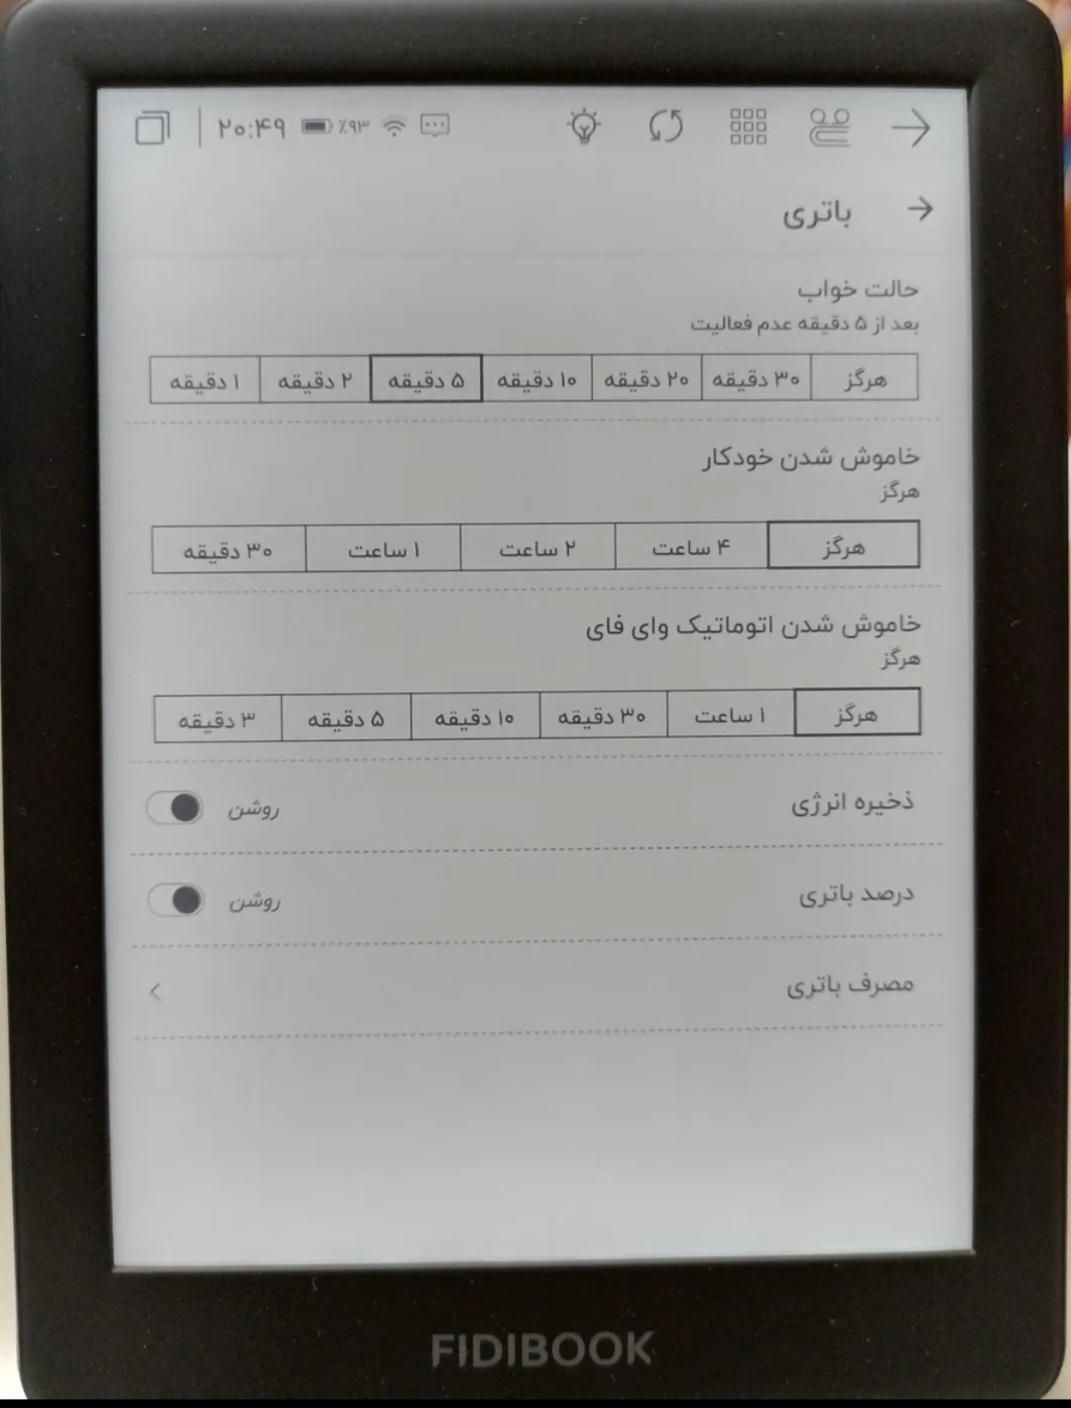 ۲۰:۴۹ ٪۹۳
باتری
حالت خواب
بعد از ۵ دقیقه عدم فعالیت
هرگز ۳۰ دقیقه ۲۰ دقیقه ۱۰ دقیقه ۵ دقیقه ۲ دقیقه ۱ دقیقه
خاموش شدن خودکار
هرگز
هرگز ۴ ساعت ۲ ساعت ۱ ساعت ۳۰ دقیقه
خاموش شدن اتوماتیک وای فای
هرگز
هرگز ۱ ساعت ۳۰ دقیقه ۱۰ دقیقه ۵ دقیقه ۳ دقیقه
ذخیره انرژی روشن
درصد باتری روشن
مصرف باتری
FIDIBOOK